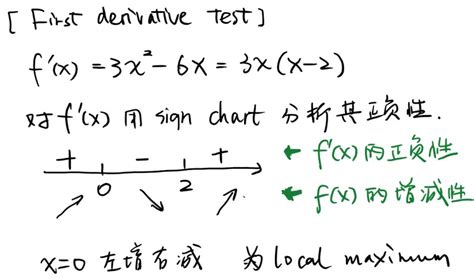 [ First derivative test ]
f'(x) = 3x² - 6x = 3x(x-2)
对 f'(x) 用 sign chart 分析其正负性.
+ - + ← f'(x) 的正负性
0 2 ← f(x) 的增减性
x=0 左增右减 为 local maximum